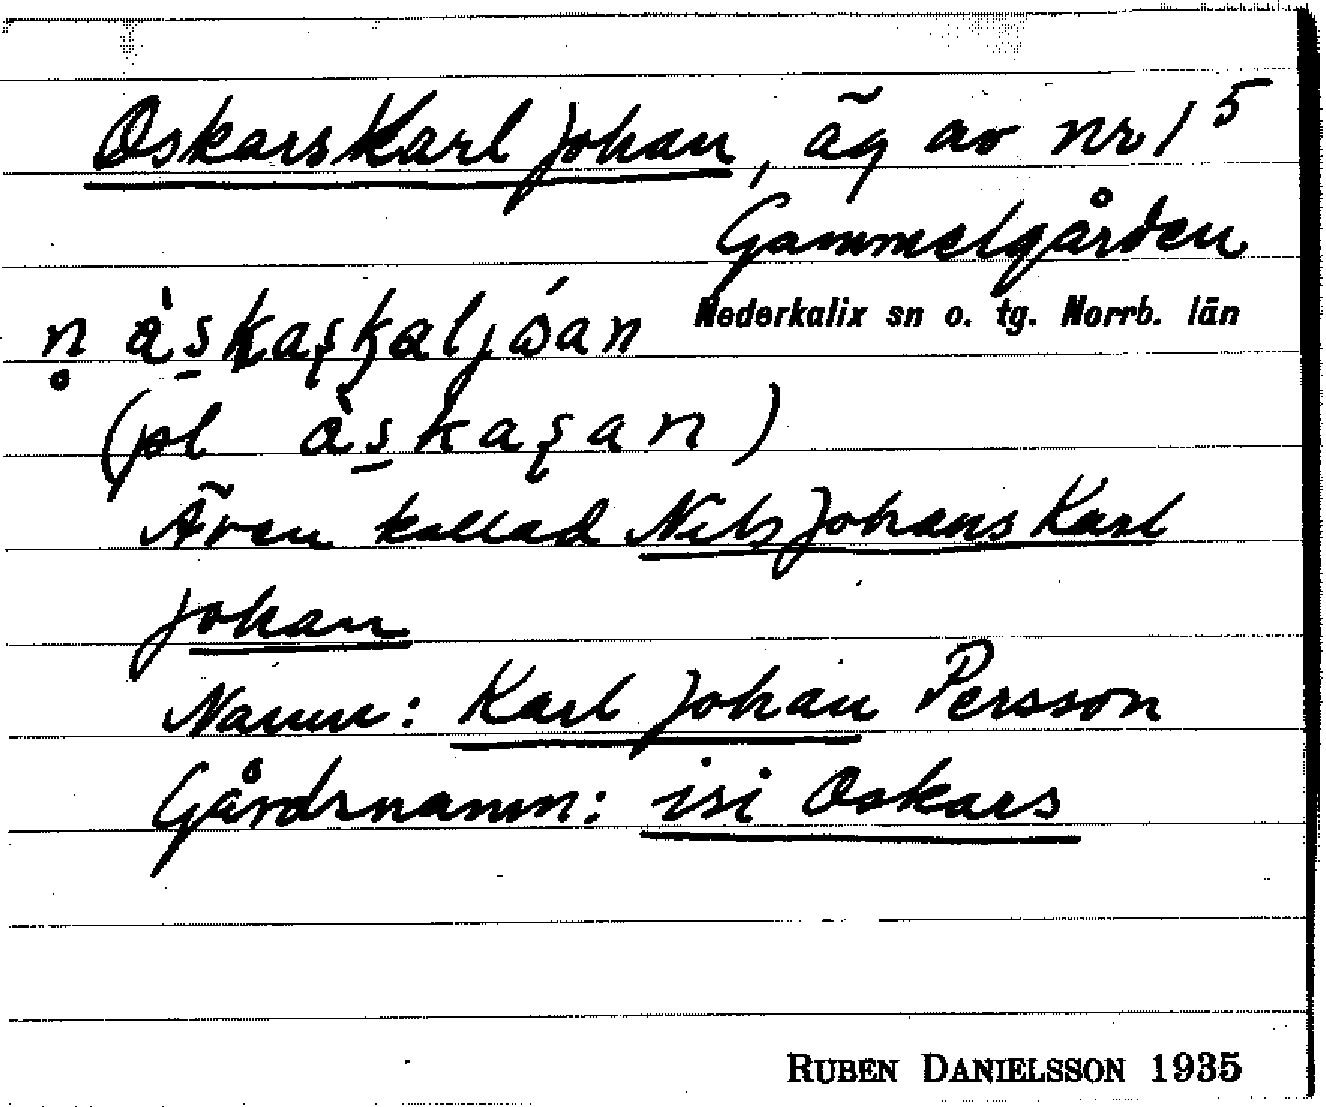 Oskars Karl Johan, äg av nr 1⁵
Gammelgården
Nederkalix sn o. tg. Norrb. län
n̥ às̠kaʂkaljóan
(pl às̠kaʂan)
Även kallad Nils Johans Karl
Johan
Namn: Karl Johan Persson
Gårdsnamn: isi Oskars
RUBEN DANIELSSON 1935